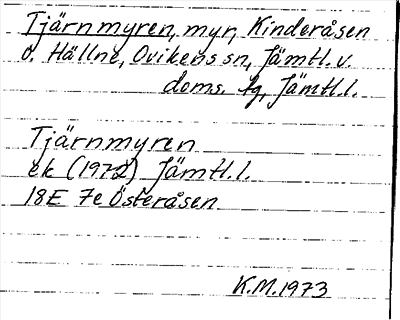 Tjärnmyren, myr, Kinderåsen
o. Hällne, Ovikens sn, Jämtl. v.
doms. fg, Jämtl. l.
Tjärnmyren
ek (1972) Jämtl. l.
18E 7e Österåsen
K.M. 1973